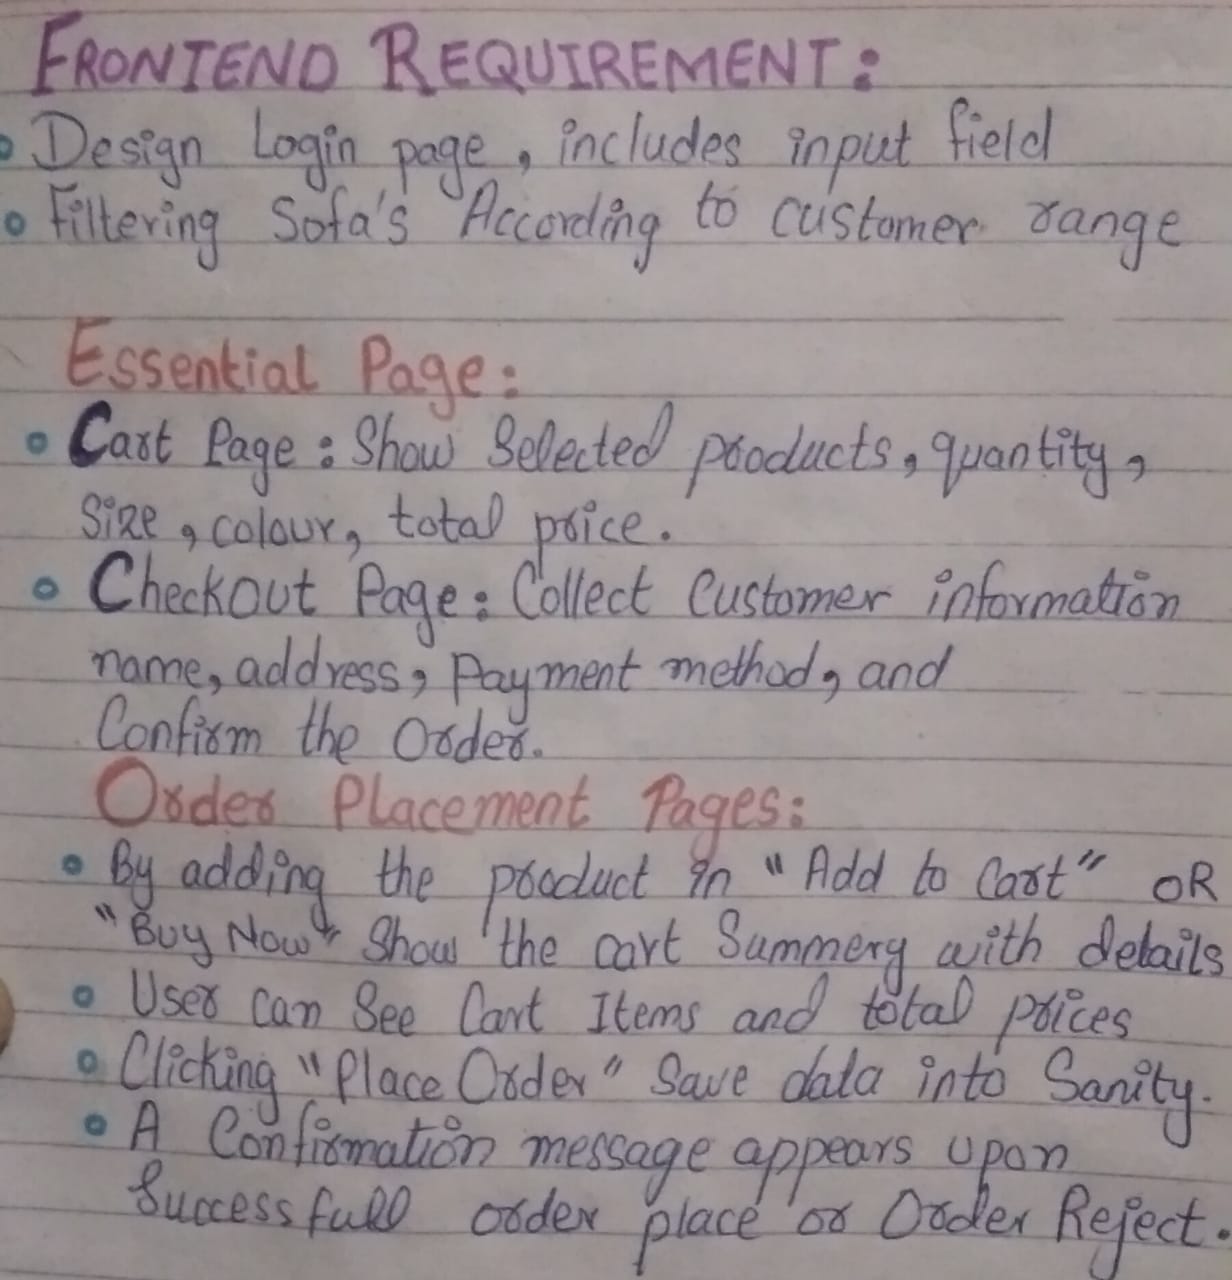 FRONTEND REQUIREMENT:
Design Login page, includes input field
Filtering Sofa's According to customer range
Essential Page:
Cart Page: Show Selected products, quantity,
Size, colour, total price.
Checkout Page: Collect Customer information
name, address, Payment method, and
Confirm the Order.
Order Placement Pages:
By adding the product in "Add to Cart" OR
"Buy Now" Show the cart Summery with details
User can See Cart Items and total prices
Clicking "Place Order" Save data into Sanity.
A Confirmation message appears upon
Successfull order place or Order Reject.